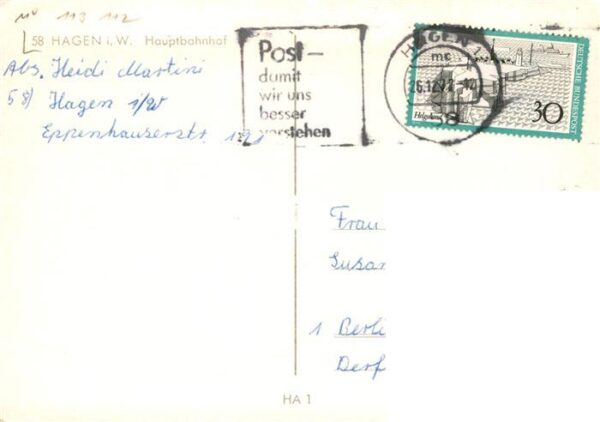 113 112
58 HAGEN i. W. Hauptbahnhof
Abs. Heidi Martini
58) Hagen i/W
Eppenhauserstr. 191
Post–
damit
wir uns
besser
verstehen
HAGEN 1
mc
58
DEUTSCHE BUNDESPOST
30
Frau
Susan
1 Berli
Derf
HA 1